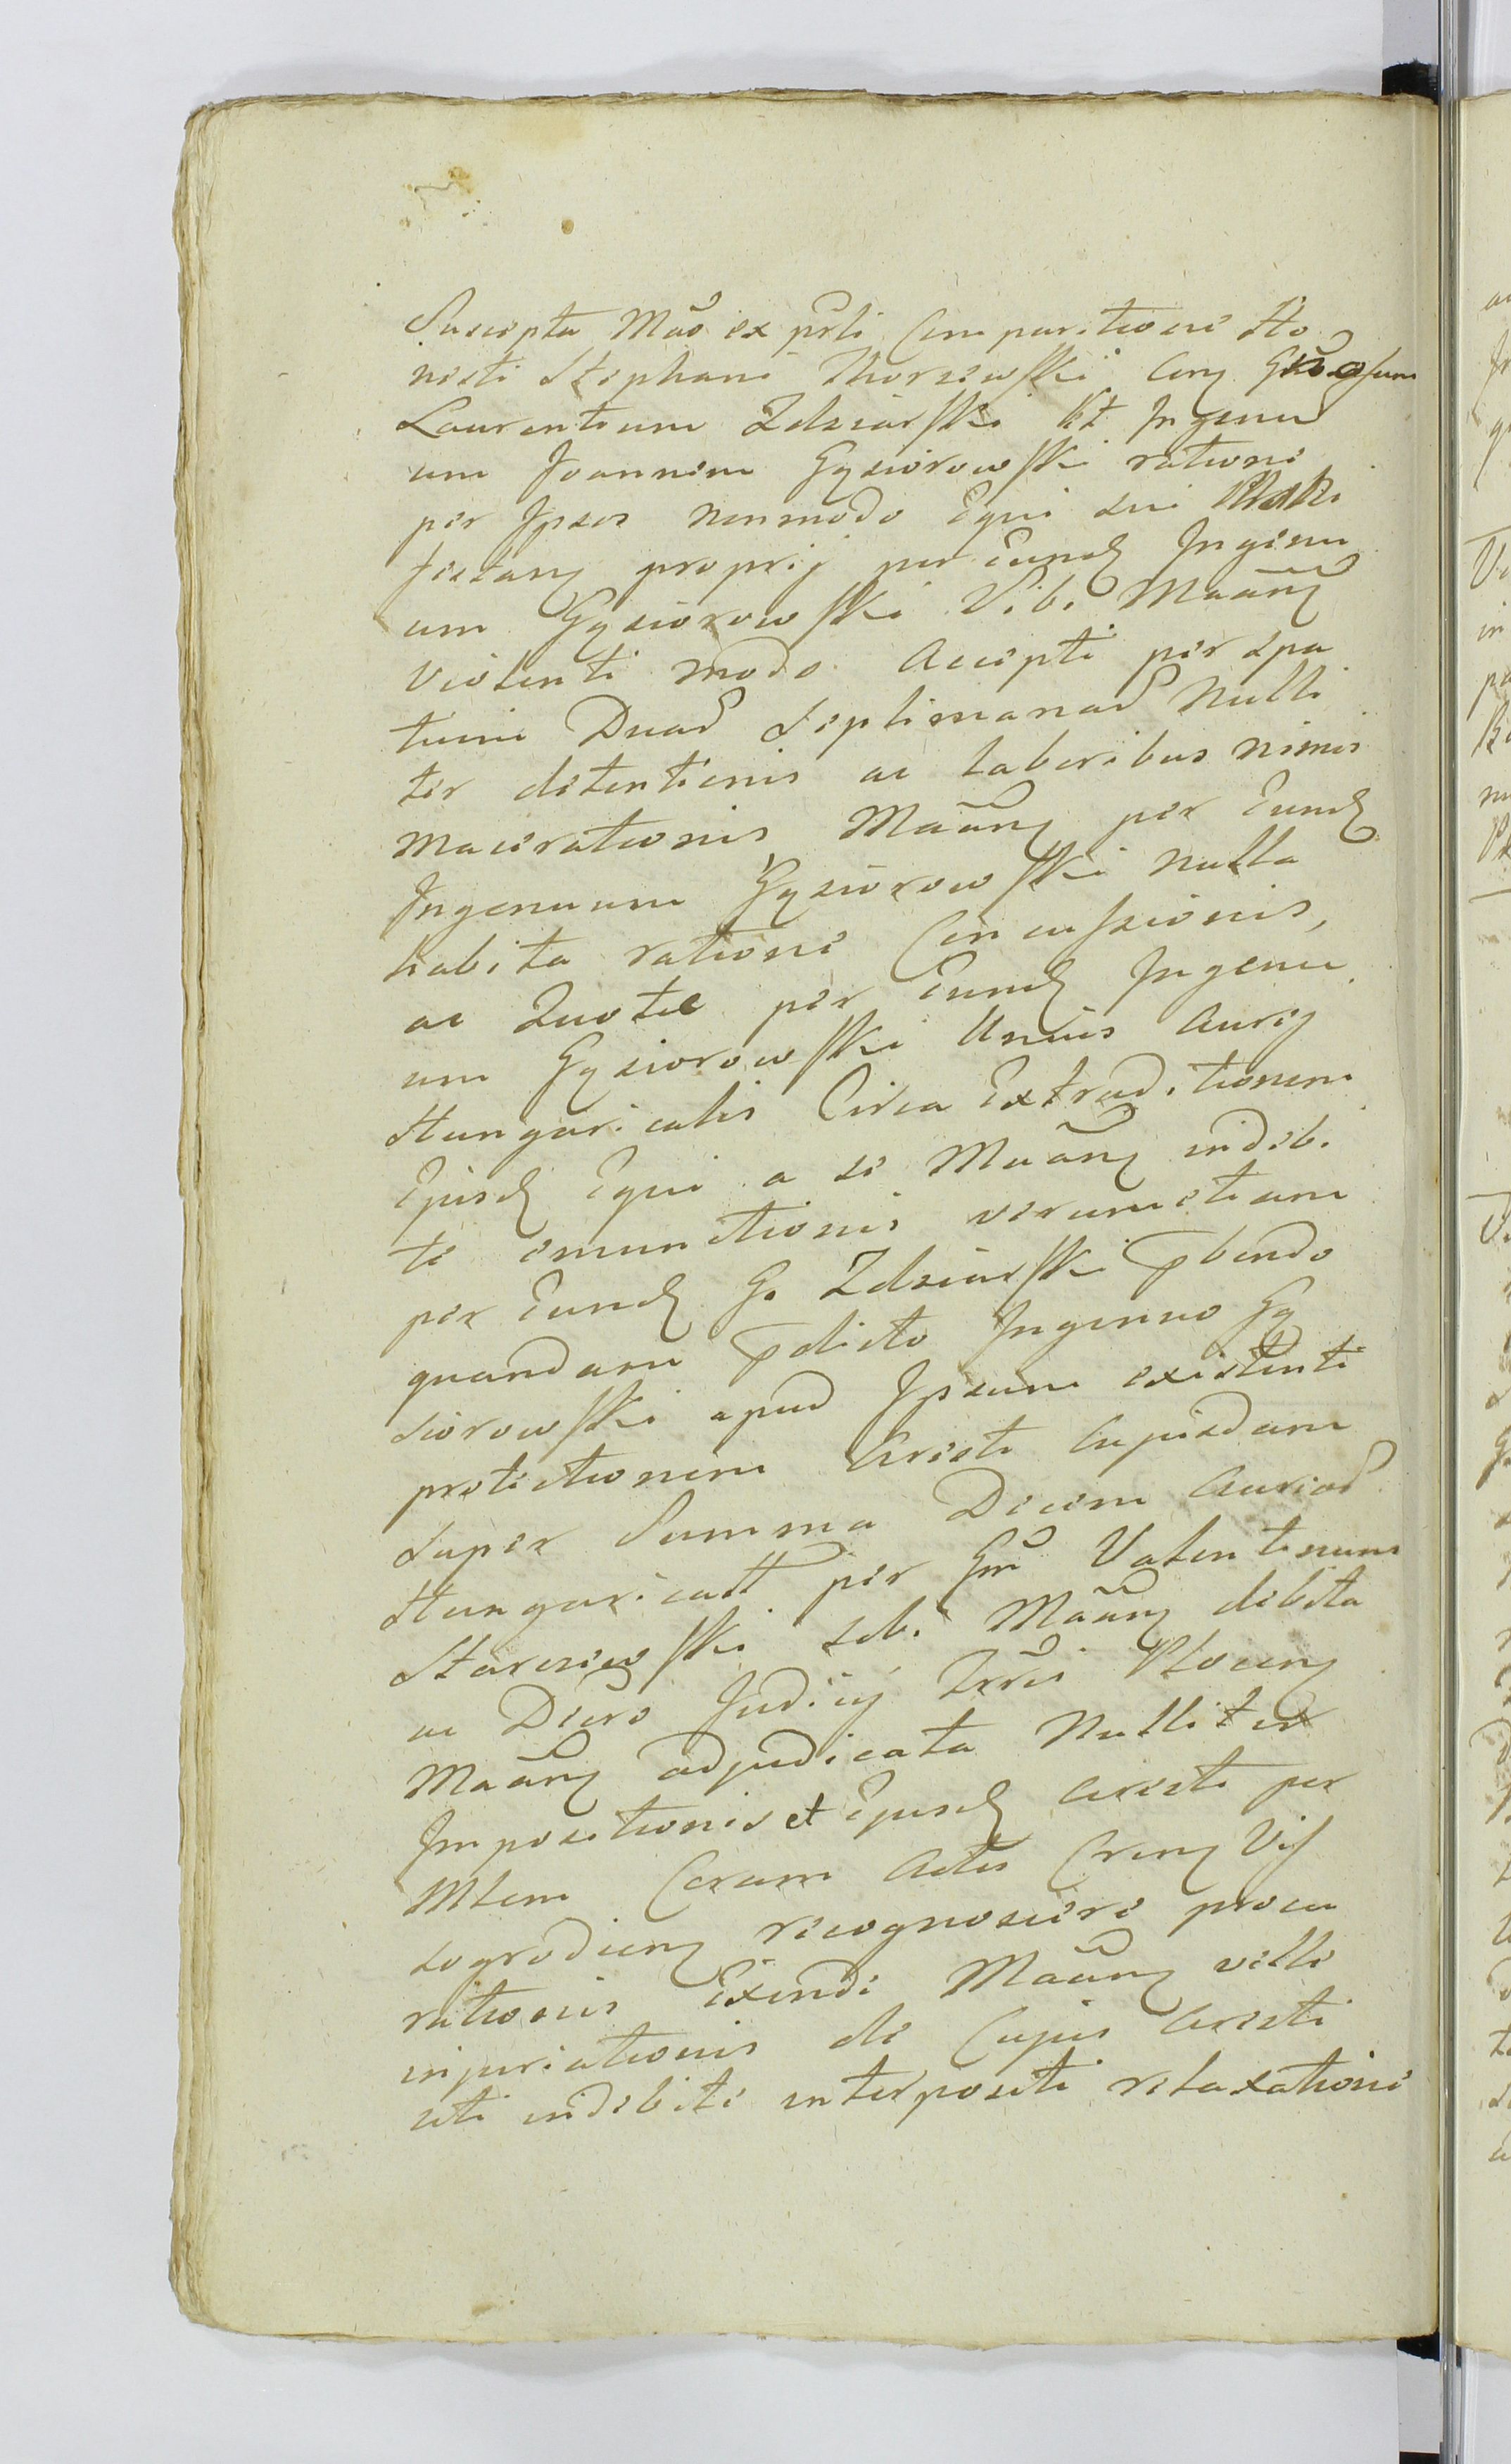 Suscepta Mãõ ex pñti Comparitione Ho
nesti Stephani Thorzewski Con Gñõsum
Laurentium Zdziarski et Ingenu
um Joannem Gąsiorowski ratione
per Ipsos nonmodo Equi sui
proprij per Eund Ingenu
um Gąsiorowski Sibi Maãn
violenti modo accepti per spa
tium Duaȓ Septimanaȓ Nulli
ter detentionis ac laboribus nimis
macerationis Maãn per Eund
Ingenuum Gąsiorowski nulla
habita ratione Concussionis,
ac Quotae per Eund Ingenu
um Gąsiorowski Unius Aurej
Hungaricalis Circa Extraditionem
Ejusd Equi a se Maãn indebi
te emunctionis verumetiam
per Eund G. Zdziarski pbendo
quandam pdicto Ingenuo Gą
siorowski apud Ipsum existenti
protectionem Aresti cujusdam
super Summa Decem Aureoȓ
Hungaricall per Gñ Valentinum
Starczewski sibi Maãn debita
ac Dčrõ Judicij Trr̃is Plocen
Maãn adjudicata Nulliter
Impositionis et Ejusd Aresti per
Mlem Coram Actis Cren Vis
sogrodien recognoscere procu
rationis Exindi Maãn velle
injuriationis de Cujus Aresti
uti indebite interpositi relaxatione